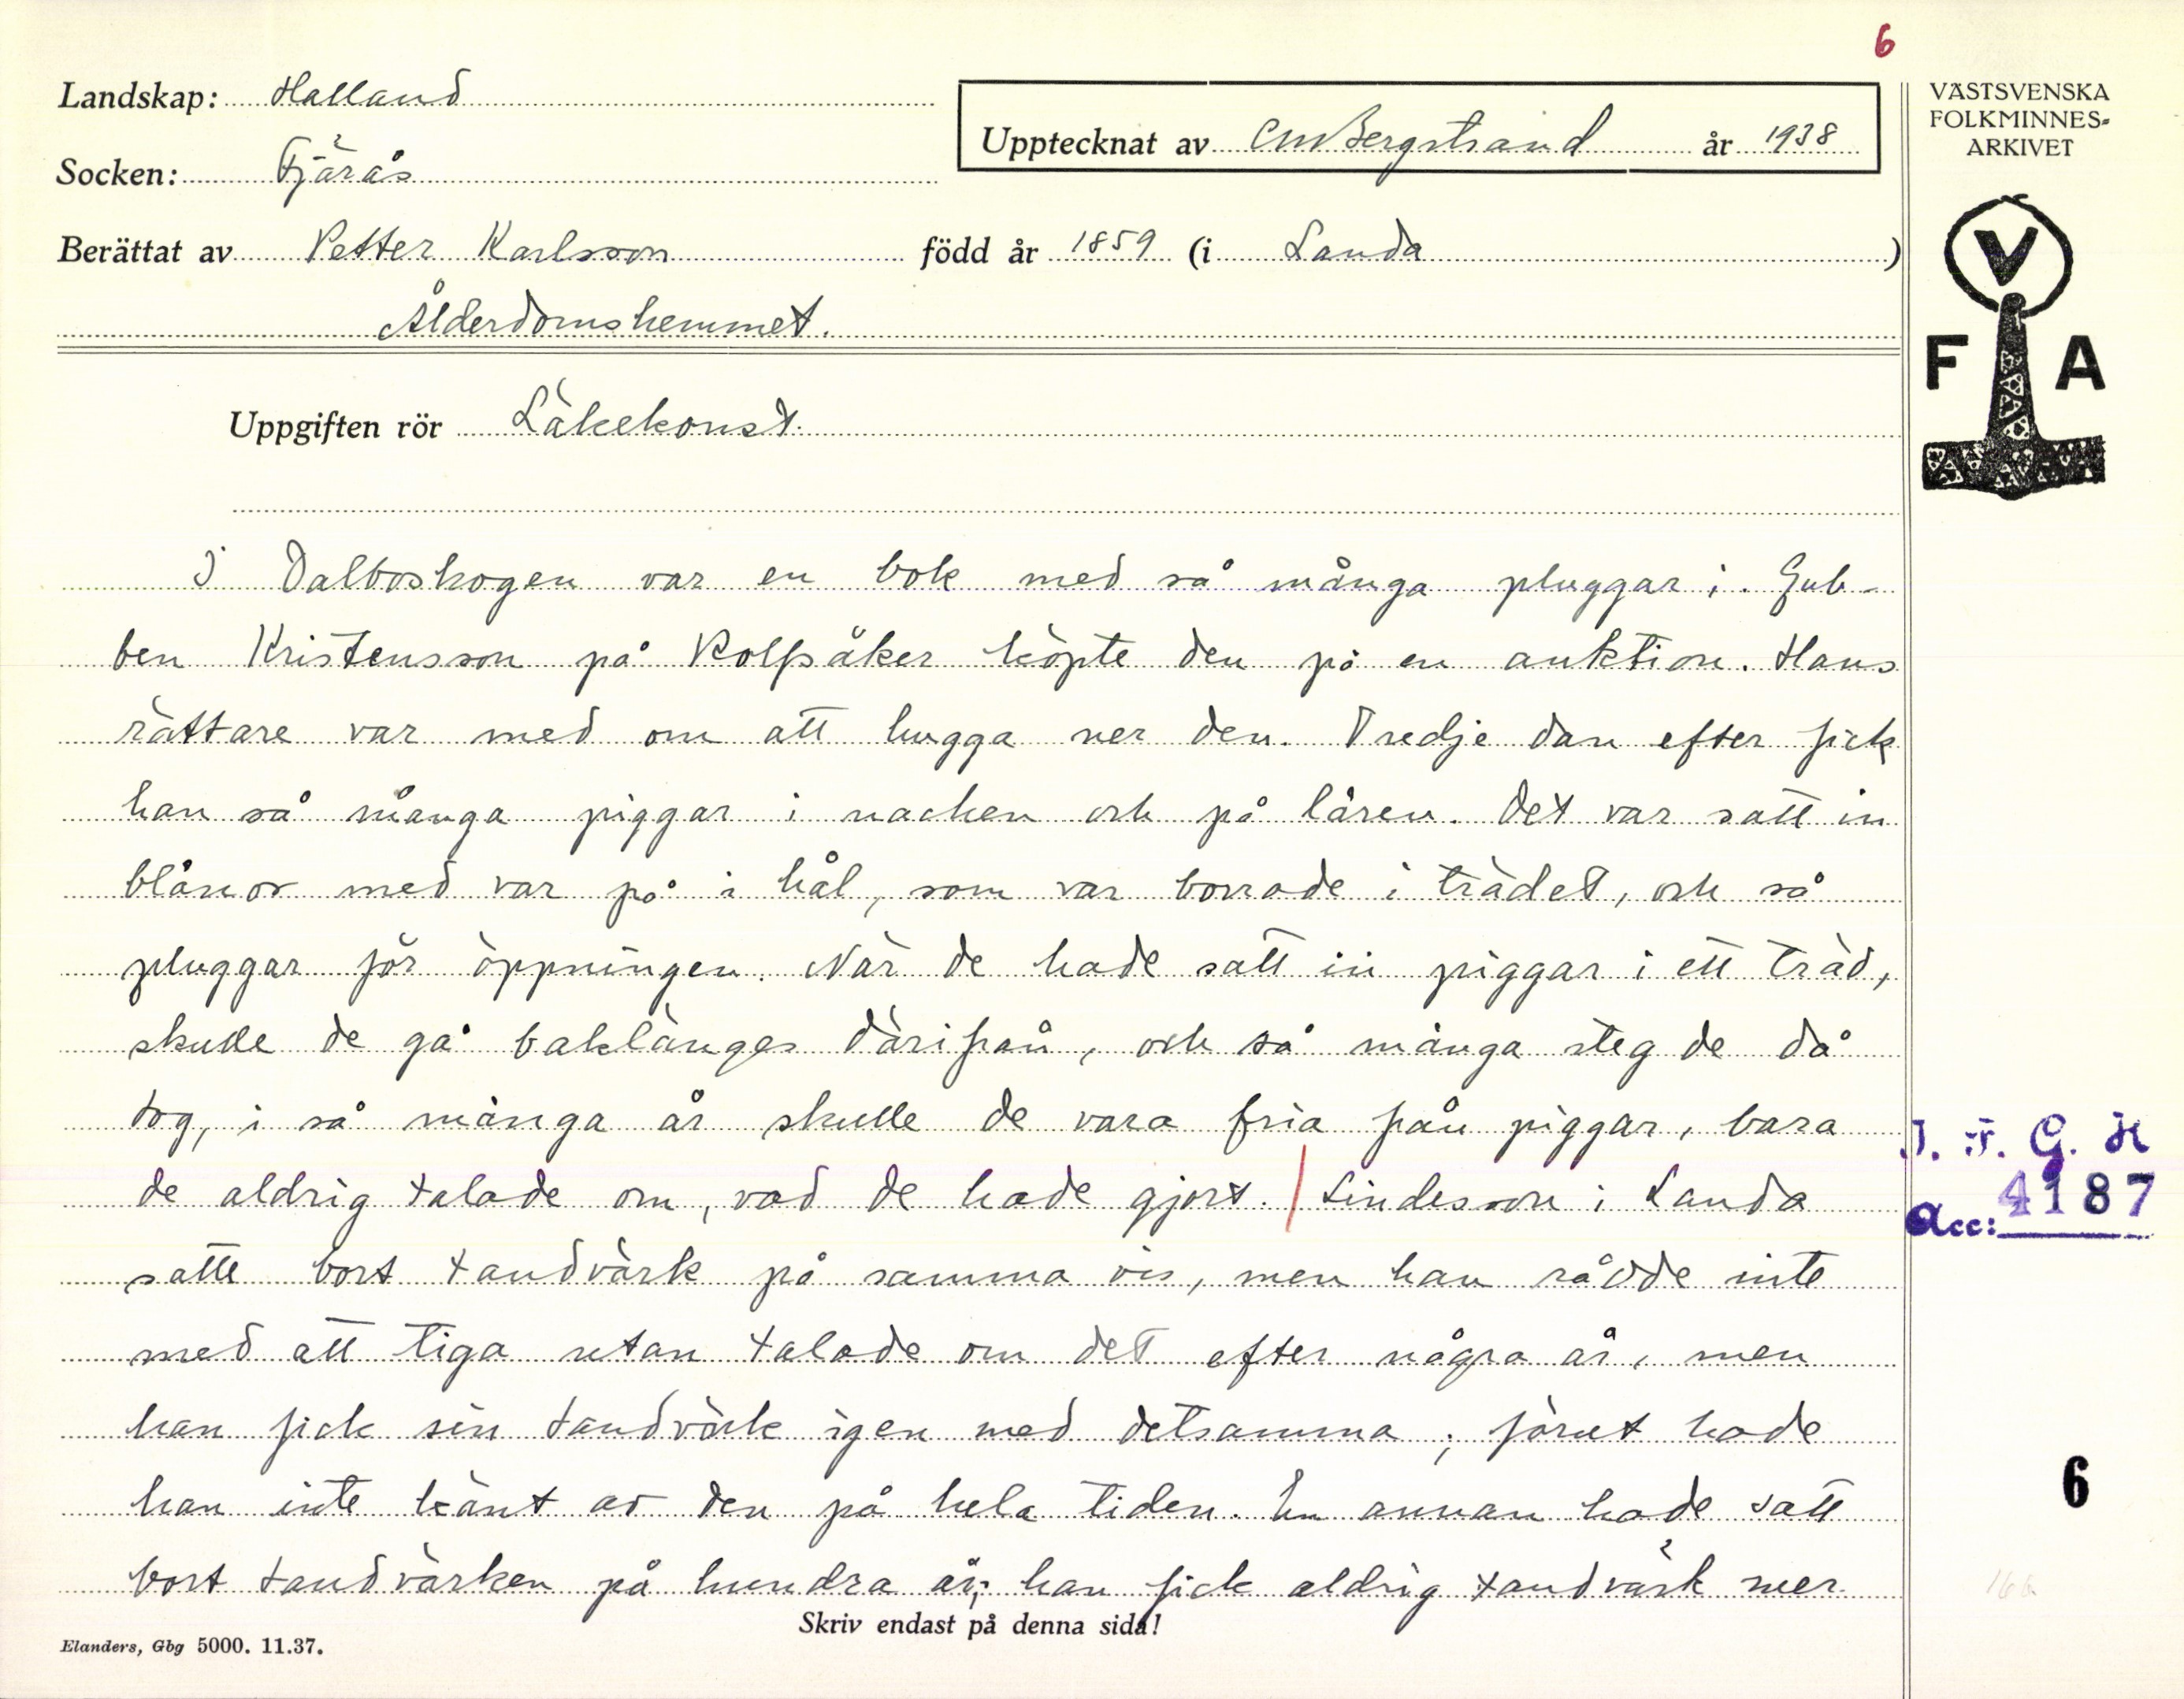 6
Landskap: Halland
Socken: Fjärås
Upptecknat av CMBergstrand år 1938
Berättat av Petter Karlsson född år 1859 (i Landa)
Ålderdomshemmet.
Uppgiften rör Läkekonst.
I Dalboskogen var en bok med så många pluggar i. Gub-
ben Kristensson på Rolfsåker köpte den på en auktion. Hans
rättare var med om att hugga ner den. Tredje dan efter fick
han så många piggar i nacken och på låren. Det var satt in
blånor med var på i hål, som var borrade i trädet, och så
pluggar för öppningen. När de hade satt in piggar i ett träd,
skulle de gå baklänges därifrån, och så många steg de då
tog, i så många år skulle de vara fria från piggar, bara
de aldrig talade om, vad de hade gjort. / Lindesson i Landa
satte bort tandvärk på samma vis, men han rådde inte
med att tiga utan talade om det efter några år, men
han fick sin tandvärk igen med detsamma; förut hade
han inte känt av den på hela tiden. En annan hade satt
bort tandvärken på hundra år; han fick aldrig tandvärk mer
Skriv endast på denna sida!
Elanders, Gbg 5000. 11.37.
VÄSTSVENSKA
FOLKMINNES-
ARKIVET
V
F A
I. F. G. H
Acc: 4187
6
166